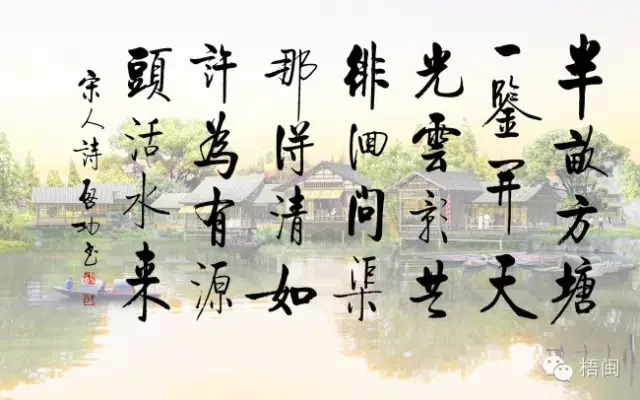 半畝方塘
一鑒开天
光雲影共
徘徊問渠
那得清如
許為有源
頭活水来
宋人詩 啟功书
梧闽